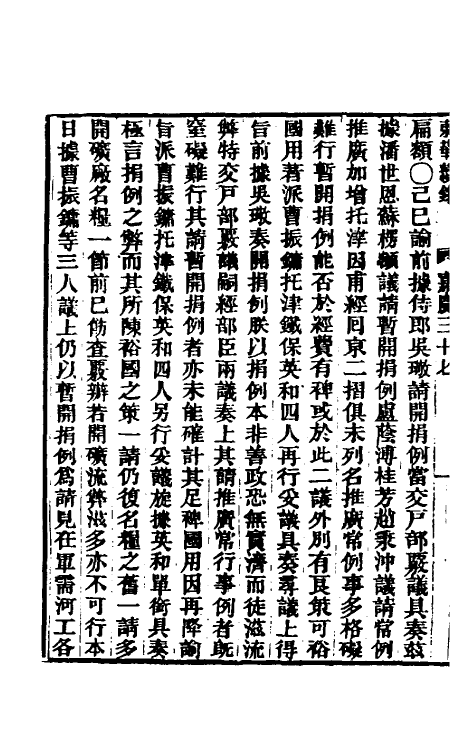 東華續錄　嘉慶三十七　一
扁額○己巳諭前據侍郎吳璥請開捐例當交戶部嚴議具奏茲
據潘世恩蘇楞額議請暫開捐例盧蔭溥桂芳趙秉沖議請常例
推廣加增托津因甫經回京二摺俱未列名推廣常例事多格礙
難行暫開捐例能否於經費有裨或於此二議外別有良策可裕
國用著派曹振鏞托津鐵保英和四人再行妥議具奏尋議上得
旨前據吳璥奏開捐例朕以捐例本非善政恐無實濟而徒滋流
弊特交戶部嚴議嗣經部臣兩議奏上其請推廣常行事例者旣
窒礙難行其請暫開捐例者亦未能確計其足裨國用因再降諭
旨派曹振鏞托津鐵保英和四人另行妥議旋據英和單銜具奏
極言捐例之弊而其所陳裕國之策一請仍復名糧之舊一請多
開礦廠名糧一節前已飭查嚴辦若開礦流弊滋多亦不可行本
日據曹振鏞等三人議上仍以暫開捐例爲請見在軍需河工各